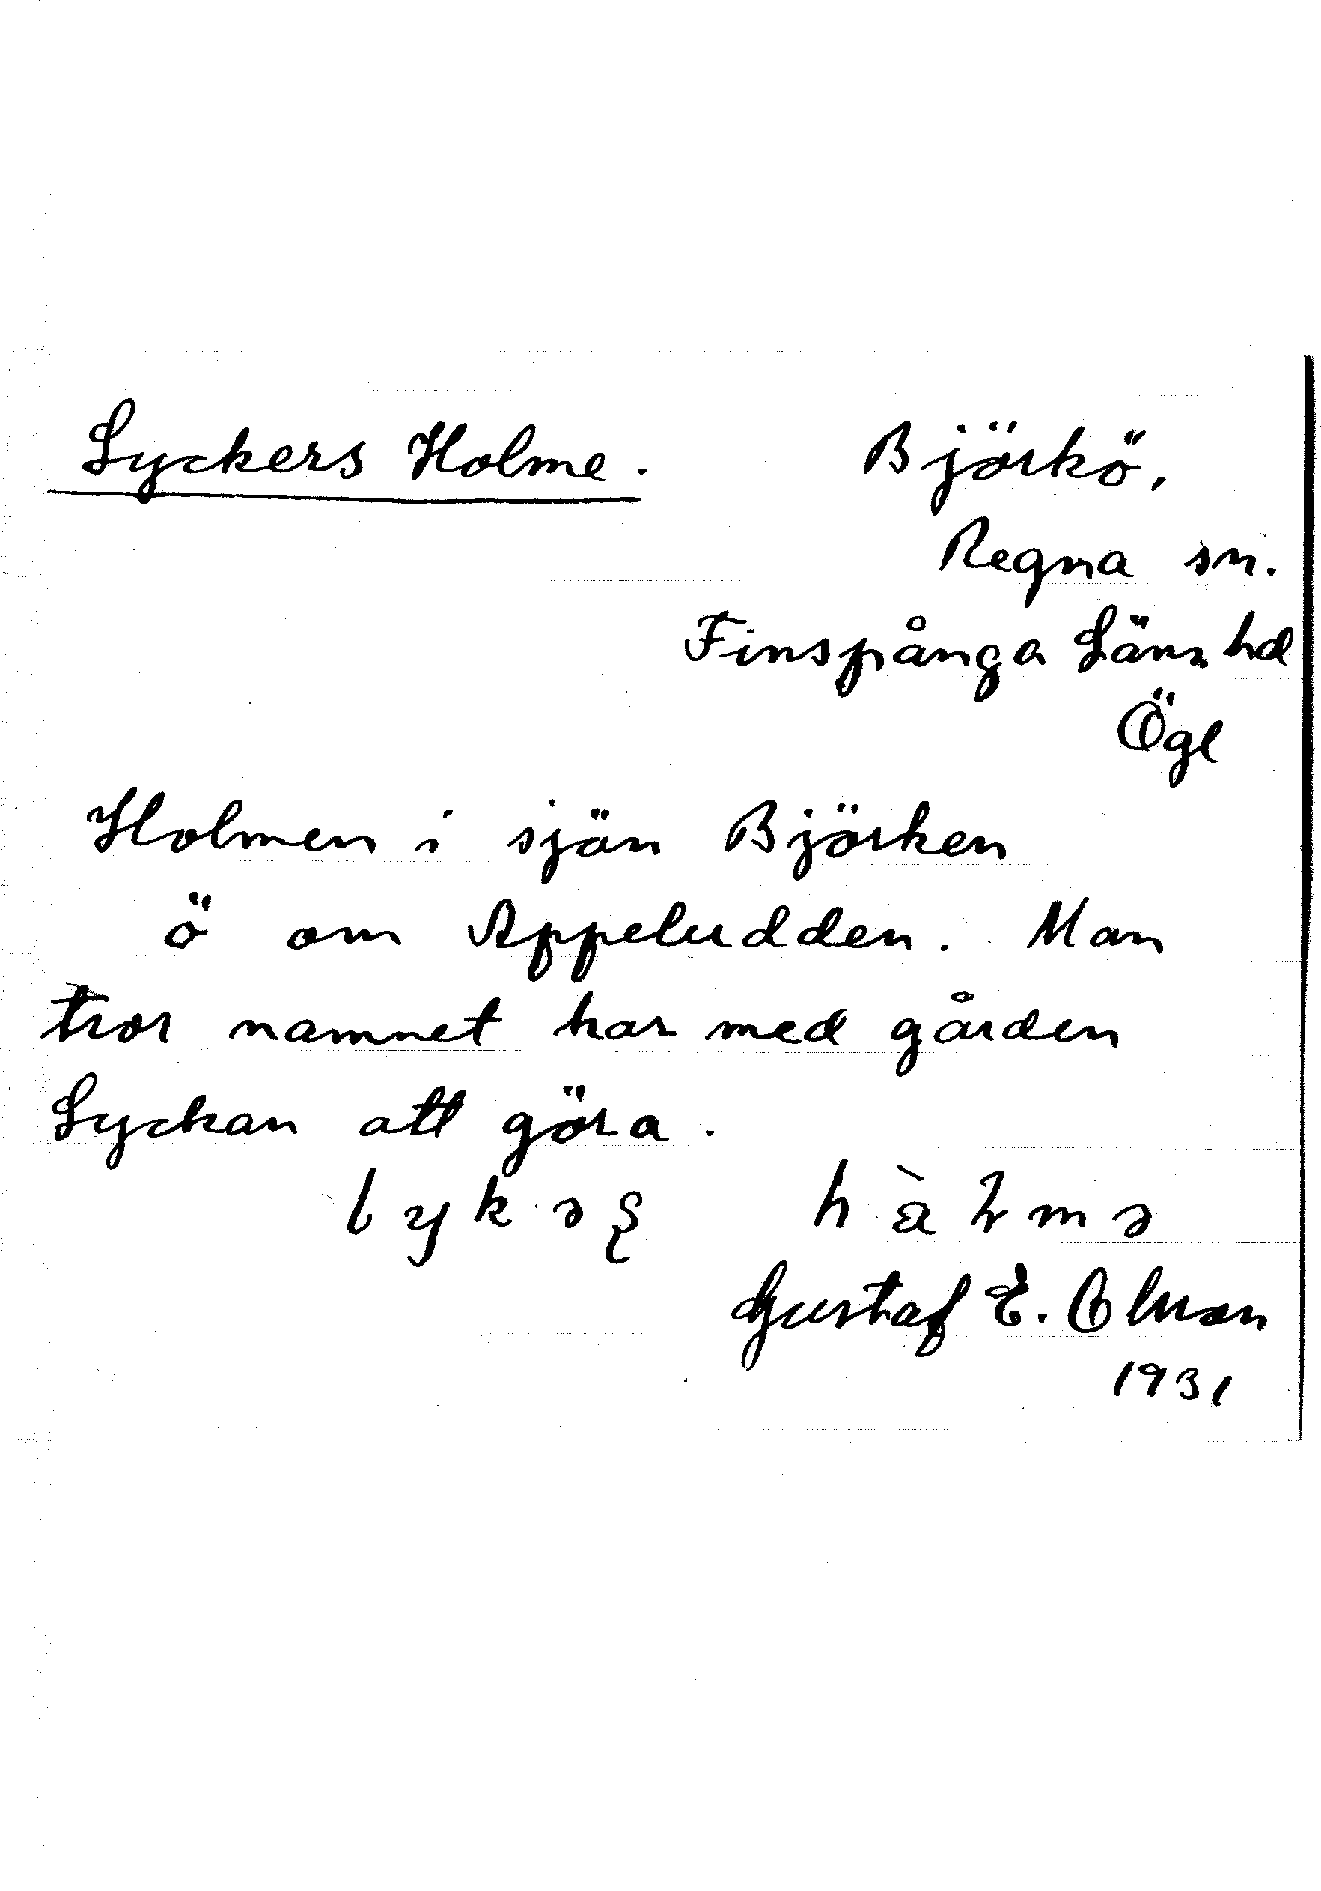 Lyckers Holme.
Björkö,
Regna sn.
Finspånga Läns hd
Ögl
Holmen i sjön Björken
ö om Appeludden. Man
tror namnet har med gården
Lyckan att göra.
Gustaf E.
1931